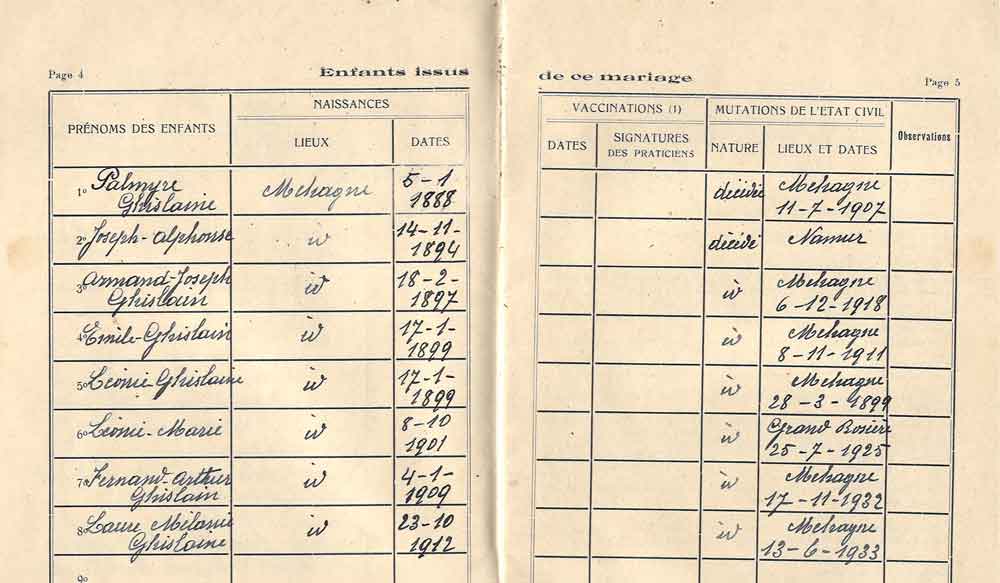 Page 4
Enfants issus
de ce mariage
Page 5
PRÉNOMS DES ENFANTS
NAISSANCES
LIEUX
DATES
VACCINATIONS (1)
DATES
SIGNATURES
DES PRATICIENS
MUTATIONS DE L'ETAT CIVIL
NATURE
LIEUX ET DATES
Observations
1º Palmyre
Ghislaine
Mehagne
5-1
1888
décédée
Mehagne
11-7-1907
2º Joseph-Alphonse
id
14-11-
1894
décédé
Namur
3º Armand-Joseph
Ghislain
id
18-2-
1897
id
Mehagne
6-12-1918
4º Emile-Ghislain
id
17-1-
1899
id
Mehagne
8-11-1911
5º Léonie-Ghislaine
id
17-1-
1899
id
Mehagne
28-3-1899
6º Léonie-Marie
id
8-10
1901
id
Grand Rosière
25-7-1925
7º Fernand-Arthur
Ghislain
id
4-1-
1909
id
Mehagne
17-11-1932
8º Laure Mélanie
Ghislaine
id
23-10
1912
id
Mehagne
13-6-1933
9º